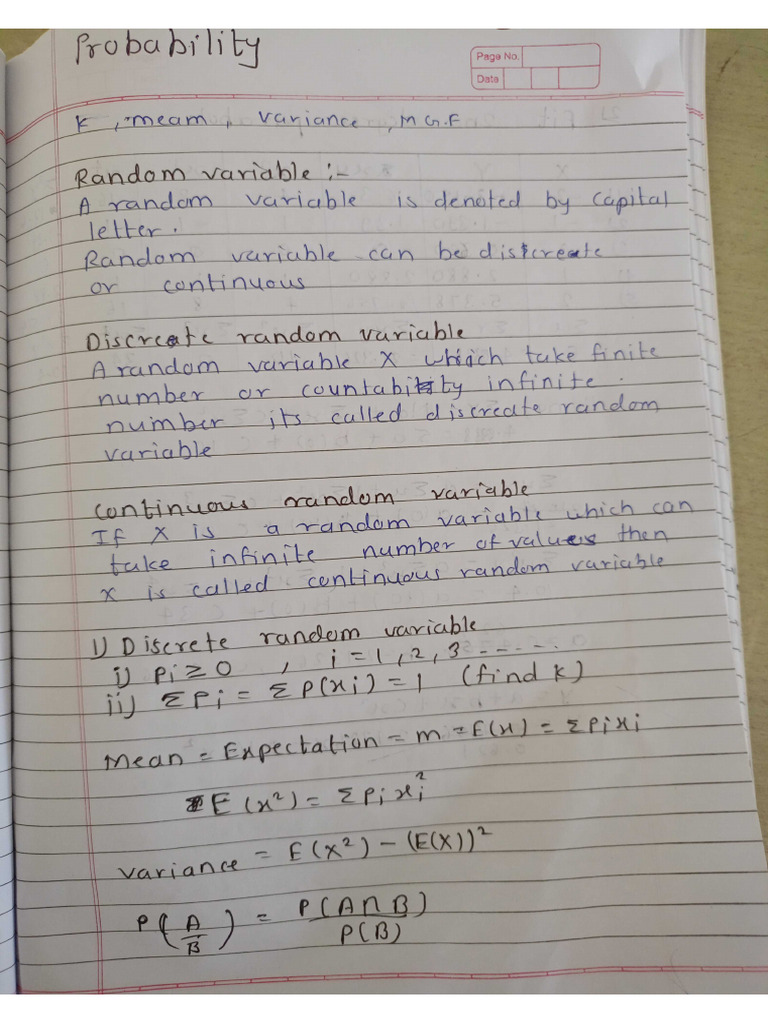 Probability
Page No.
Date
K, mean, variance, M G.F
Random variable :-
A random variable is denoted by capital
letter.
Random variable can be discreate
or continuous
Discreate random variable
A random variable X which take finite
number or countability infinite.
number its called discreate random
variable
Continuous random variable
If X is a random variable which can
take infinite number of values then
x is called continuous random variable
1) Discrete random variable
i) Pi ≥ 0 , i = 1, 2, 3 ------
ii) ΣPi = ΣP(xi) = 1 (find k)
Mean = Expectation = m = E(x) = ΣPixi
E(x²) = ΣPixi²
variance = E(X²) - (E(X))²
P(A/B) = P(A∩B)/P(B)